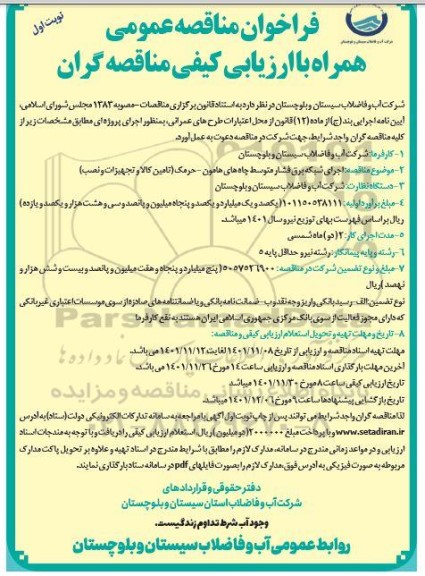 نوبت اول
فراخوان مناقصه عمومی
همراه با ارزیابی کیفی مناقصه گران
شرکت آب و فاضلاب سیستان و بلوچستان در نظر دارد به استناد قانون برگزاری مناقصات -مصوبه ۱۳۸۳ مجلس شورای اسلامی،
آیین نامه اجرایی بند (ج) از ماده (۱۲) قانون از محل اعتبارات طرح های عمرانی، بمنظور اجرای پروژه ای مطابق مشخصات زیر از
کلیه مناقصه گران واجد شرایط، جهت شرکت در مناقصه دعوت به عمل آورد.
۱- کارفرما: شرکت آب و فاضلاب سیستان و بلوچستان
۲- موضوع مناقصه: اجرای شبکه برق فشار متوسط چاه های هامون - حرمک (تامین کالا و تجهیزات و نصب)
۳- دستگاه نظارت: شرکت آب و فاضلاب سیستان و بلوچستان
۴- مبلغ برآورد اولیه: ۱۰۱۱۵۰۵۳۸۱۱۱ (یکصد و یک میلیارد و یکصد و پنجاه میلیون و پانصد و سی و هشت هزار و یکصد و یازده)
ریال بر اساس فهرست بهای توزیع نیرو سال ۱۴۰۱ میباشد.
۵- مدت اجرای کار: ۲ (دو) ماه شمسی
۶- رشته و پایه پیمانکار: رشته نیرو حداقل پایه ۵
۷- مبلغ و نوع تضمین شرکت در مناقصه: ۵۰۵۷۵۲۶۹۰۰ (پنج میلیارد و پنجاه و هفت میلیون و پانصد و بیست و شش هزار و
نهصد) ریال
نوع تضمین: الف- رسید بانکی واریز وجه نقد وب- ضمانت نامه بانکی و یا ضمانتنامه های صادره از سوی موسسات اعتباری غیر بانکی
که دارای مجوز فعالیت از سوی بانک مرکزی جمهوری اسلامی ایران هستند به نفع کارفرما
۸- تاریخ و مهلت تهیه و تحویل استعلام ارزیابی کیفی و مناقصه:
مهلت تهیه اسناد مناقصه و ارزیابی از تاریخ ۱۴۰۱/۱۱/۰۸ لغایت ۱۴۰۱/۱۱/۱۲ می باشد.
آخرین مهلت بارگذاری اسناد مناقصه و ارزیابی ساعت ۱۴ مورخ ۱۴۰۱/۱۱/۲۶ می باشد.
تاریخ ارزیابی کیفی ساعت ۸ مورخ ۱۴۰۱/۱۱/۳۰ میباشد
تاریخ بازگشایی پیشنهادها ساعت ۹ مورخ ۱۴۰۱/۱۲/۰۶ میباشد.
لذا مناقصه گران واجد شرایط می توانند پس از چاپ نوبت اول آگهی با مراجعه به سامانه تدارکات الکترونیکی دولت (ستاد) به آدرس
www.setadiran.ir و با پرداخت مبلغ ۲۰۰۰۰۰۰ (دو میلیون) ریال، استعلام ارزیابی کیفی را دریافت و با توجه به مندجات اسناد
ارزیابی و در مواعد زمانی مندرج در سامانه، مدارک لازم را مطابق با شرایط مندرج در اسناد تهیه و علاوه بر تحویل پاکت مدارک
مربوطه به صورت فیزیکی به آدرس فوق، مدارک لازم را بصورت فایلهای pdf در سامانه ستاد بارگذاری نمایند.
دفتر حقوقی و قراردادهای
شرکت آب و فاضلاب استان سیستان و بلوچستان
وجود آب شرط تداوم زندگیست.
روابط عمومی آب و فاضلاب سیستان و بلوچستان